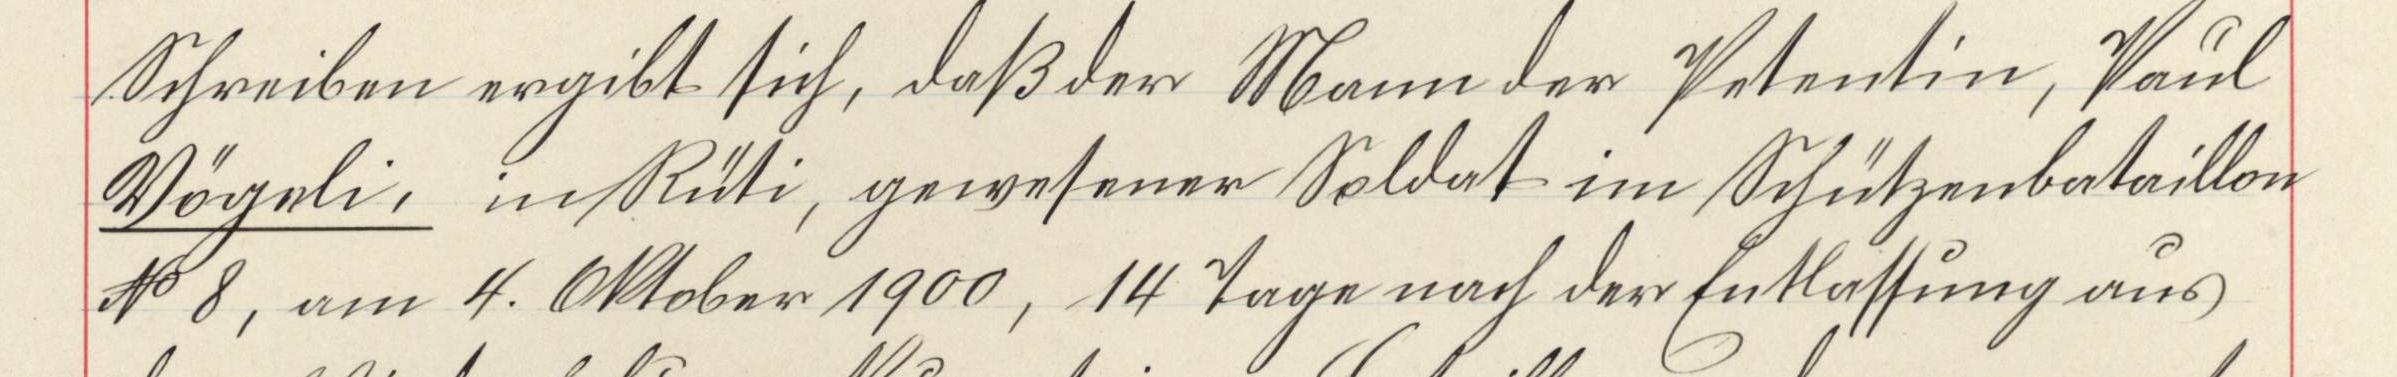 Schreiben ergibt sich, daß der Mann der Petentin, Paul
Vögeli, in Rüti, gewesener Soldat im Schützenbataillon
No 8, am 4. Oktober 1900, 14 Tage nach der Entlassung aus